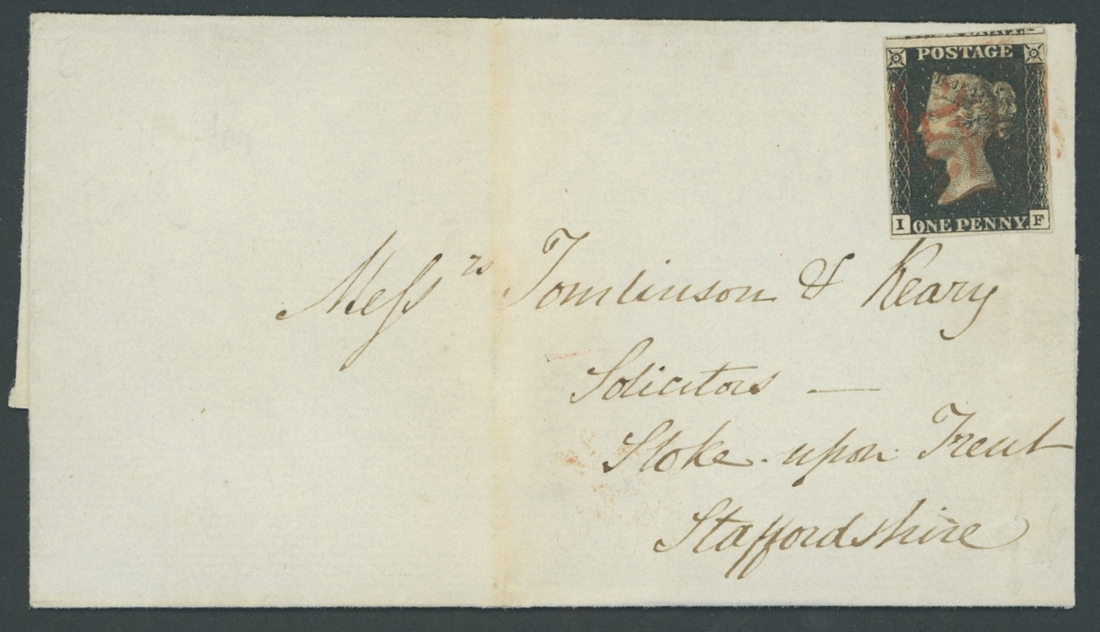 POSTAGE
I ONE PENNY. F
Messrs Tomlinson & Keary
Solicitors —
Stoke. upon Trent
Staffordshire